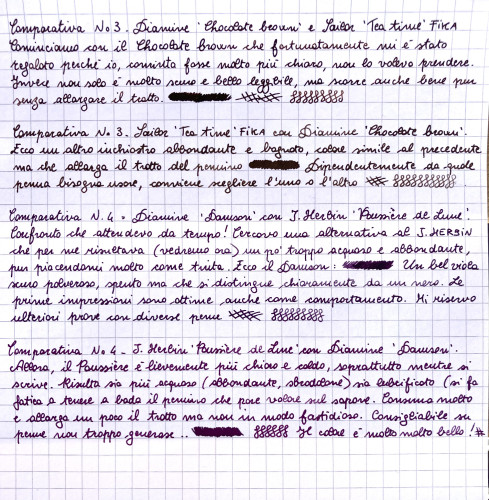 Comparativa No 3. Diamine 'Chocolate brown' e Sailor 'Tea time' FIKA
Cominciamo con il Chocolate brown che fortunatamente mi è stato
regalato perché io, convinta fosse molto più chiaro, non lo volevo prendere.
Invece non solo è molto scuro e bello leggibile, ma scorre anche bene pur
senza allargare il tratto.
Comparativa No 3. Sailor 'Tea time' FIKA con Diamine 'Chocolate brown'.
Ecco un altro inchiostro abbondante e bagnato, colore simile al precedente
ma che allarga il tratto del pennino Dipendentemente da quale
penna bisogna usare, conviene scegliere l'uno o l'altro
Comparativa N. 4 - Diamine 'Damson' con J. Herbin 'Poussière de Lune'.
Confronto che attendevo da tempo! Cercavo una alternativa al J. HERBIN
che per me rimetava (vedremo ora) un po' troppo acquoso e abbondante,
pur piacendomi molto come tinta. Ecco il Damson: Un bel viola
scuro polveroso, spento ma che si distingue chiaramente da un nero. Le
prime impressioni sono ottime, anche come comportamento. Mi riservo
ulteriori prove con diverse penne
Comparativa No 4 - J. Herbin 'Poussière de Lune' con Diamine 'Damson'.
Allora, il Poussière è lievemente più chiaro e caldo, soprattutto mentre si
scrive. Risulta sia più acquoso (abbondante, sbrodolone) sia lubrificato (si fa
fatica a tenere a bada il pennino che pare volare sul sapone. Consuma molto
e allarga un poco il tratto ma non in modo fastidioso. Consigliabile su
penne non troppo generose .. Il colore è molto molto bello !